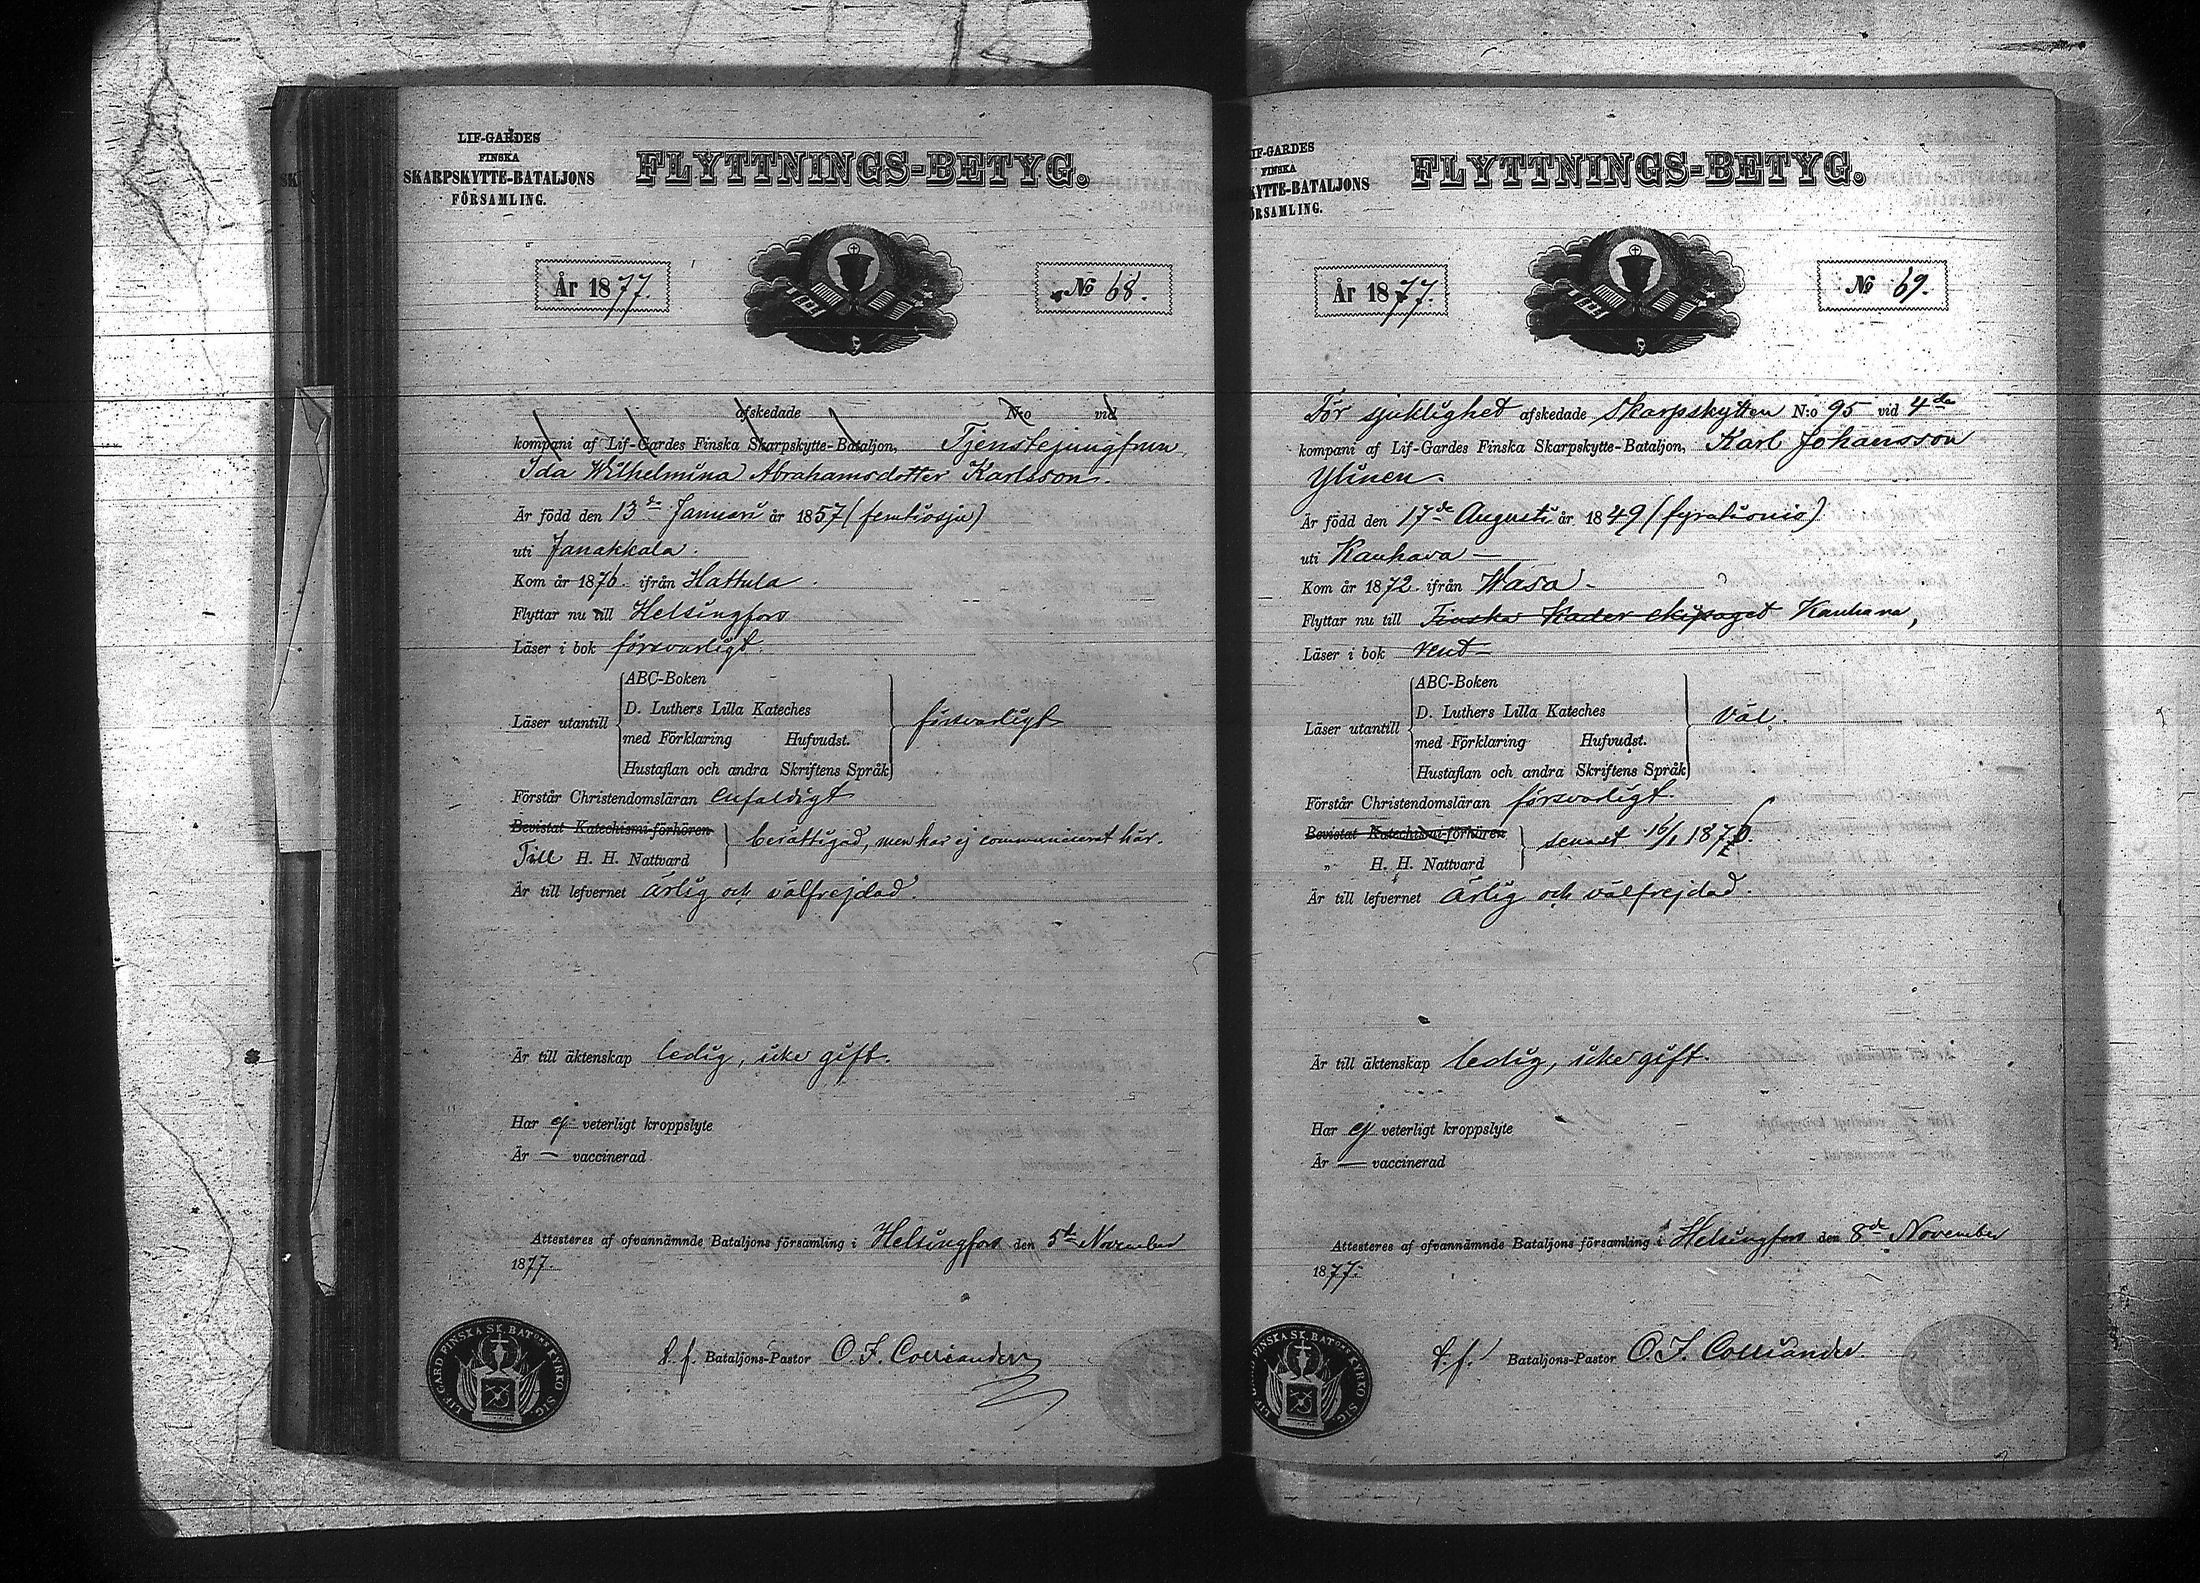 LIF-GARDES
FINSKA
SKARPSKYTTE-BATALJONS
FÖRSAMLING.
FLYTTNINGS-BETYG.
År 1877.
No 68.
afskedade N:o vid
kompani af Lif-Gardes Finska Skarpskytte-Bataljon, Tjenstejungfrun
Ida Wilhelmina Abrahamsdotter Karlsson.
Är född den 13de Januari år 1857 (femtiosju)
uti Janakkala.
Kom år 1876. ifrån Hattula.
Flyttar nu till Helsingfors
Läser i bok försvarligt.
ABC-Boken
D. Luthers Lilla Kateches
Läser utantill
försvarligt
med Förklaring Hufvudst.
Hustaflan och andra Skriftens Språk
Förstår Christendomsläran enfaldigt
Bevistat Katechismi-förhören
berättigad, men har ej communicerat här.
Till H. H. Nattvard
Är till lefvernet ärlig och välfrejdad.
Är till äktenskap ledig, icke gift.
Har ej veterligt kroppslyte
Är — vaccinerad
Attesteres af ofvannämnde Bataljons församling i Helsingfors den 5te November
1877.
LIF. GARD FINSKA SK. BATONS KYRKO SIG.
t. f. Bataljons-Pastor O. F. Colliander
IF-GARDES
FINSKA
KYTTE-BATALJONS
ÖRSAMLING.
FLYTTNINGS-BETYG.
År 1877.
No 69.
För sjuklighet afskedade Skarpskytten N:o 95 vid 4de
kompani af Lif-Gardes Finska Skarpskytte-Bataljon, Karl Johansson
Ylinen.
Är född den 17de Augusti år 1849 (fyrationio)
uti Kauhava —
Kom år 1872. ifrån Wasa.
Flyttar nu till Finska Kader ekipaget Kauhava,
Läser i bok rent —
ABC-Boken
D. Luthers Lilla Kateches
Läser utantill
väl.
med Förklaring Hufvudst.
Hustaflan och andra Skriftens Språk
Förstår Christendomsläran försvarligt.
Bevistat Katechismi-förhören
senast 16/1 187
" H. H. Nattvard
Är till lefvernet ärlig och välfrejdad.
Är till äktenskap ledig, icke gift.
Har ej veterligt kroppslyte
Är — vaccinerad
Attesteres af ofvannämnde Bataljons församling i Helsingfors den 8de November
1877.
FINSKA SK. BATONS KYRKO SIG.
t. f. Bataljons-Pastor O. F. Colliander